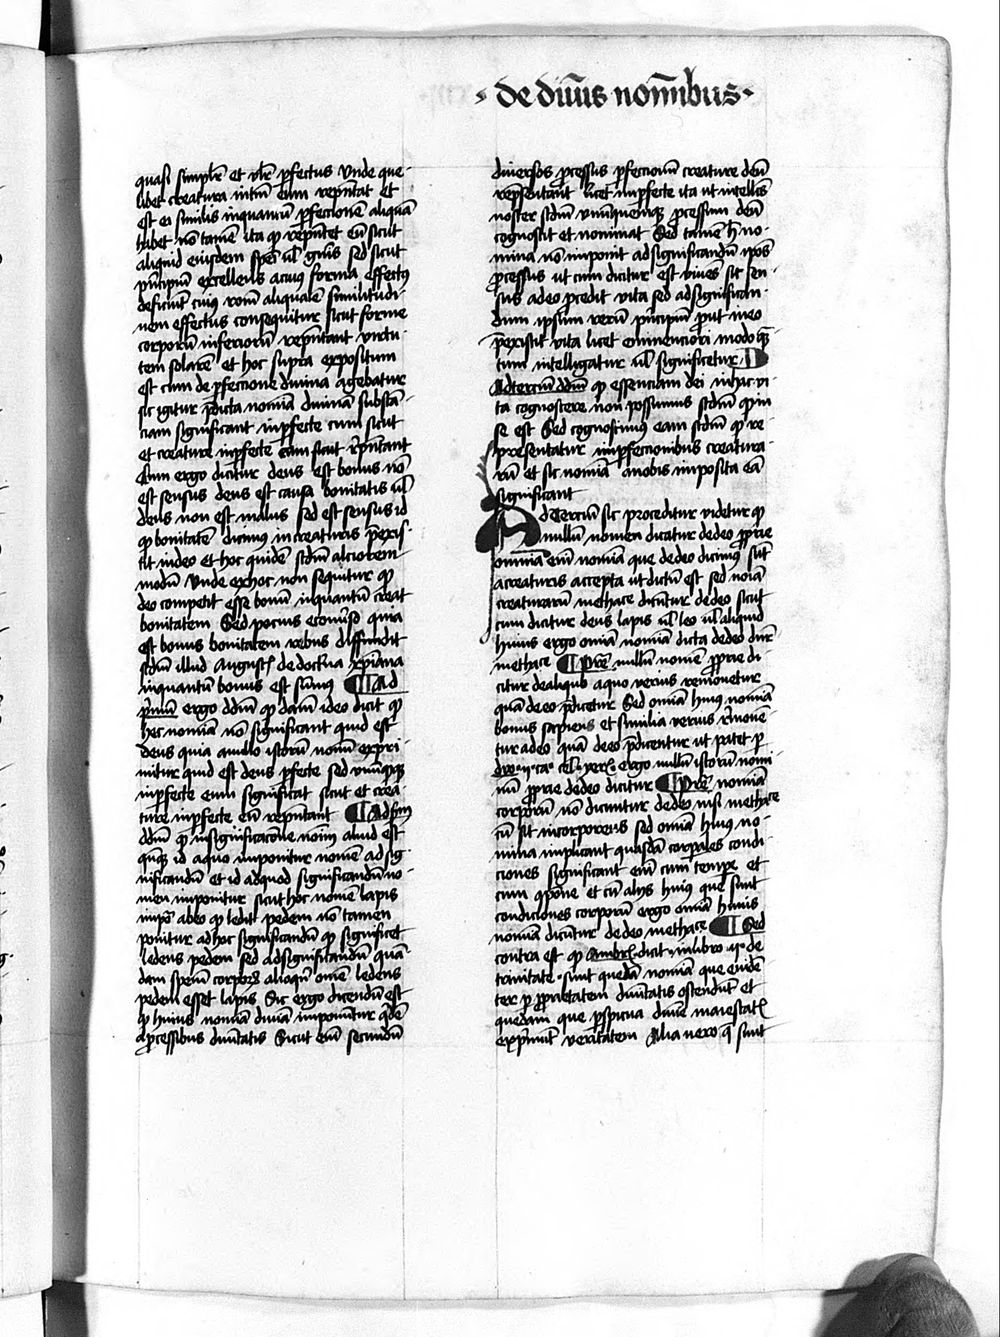 · de diuīs nomībus ·
quasi simplr̄ et vlr̄ ꝑfectus Vnde que-
libet creatura intm̄ eum rep̄ntat et
est ei similis inquantū ꝑfectionē aliquā
habet nō tamē ita ꝙ rep̄ntet eū sicut
aliquid eiusdem spēi vl̄ gn̄is sed sicut
p̄ncipiū excellens a cuius forma effectꝰ
deficiūt cuiꝰ tn̄ aliqualē similitudi-
nem effectus consequūtur sicut forme
corporū inferiorū rep̄ntant virtu-
tem solarē et hoc supra expositum
est cum de ꝑfectione diuina agebatur
sic igitur p̄dicta nomīa diuinā substā-
ciam significant inꝑfecte cum sicut
et creature inꝑfecte eam rep̄ntant
Cum ergo dicitur deus est bonus nō
est sensus deus est causa bonitatis vl̄
deus non est malus sed est sensus id
ꝙ bonitatē dicimus in creaturis p̄exis-
tit in deo et hoc quidē scdm̄ alciorem
modū Vnde ex hoc non sequitur ꝙ
deo competit esse bonū inquantū creat
bonitatem Sed pocius econuerso quia
est bonus bonitatem rebus diffundit
scdm̄ illud Augustī de doctrīa xp̄iana
inquantum bonus est sumus ¶ Ad
p̄mū ergo dd̄m ꝙ dam̄ ideo dicit ꝙ
hec nomīa nō significant quid est
deus quia a nullo istorū noīm expri-
mitur quid est deus ꝑfecte sed vnūquodꝗꝫ
inꝑfecte eum significat sicut et crea-
ture inꝑfecte eū rep̄ntant ¶ Ad scdm̄
dd̄m ꝙ in significacōne noīm aliud est
qn̄ꝗꝫ id a quo imponitur nomē ad sig-
nificandū et id ad quod significandū no-
men imponitur sicut hoc nomē lapis
imponitur ab eo ꝙ ledit pedem nō tamen
ponitur ad hoc significandū ꝙ significet
ledens pedem sed ad significandū quā-
dam speciem corporꝝ alioquī omē ledens
pedem esset lapis Sic ergo dicendū est
ꝙ huius nomīa diuīa imponūtur q̄dē
a ꝓcessibus diuītatis Sicut enī secundū
diuersos ꝓcessus ꝑfectionū creature deū
rep̄sentant licet inꝑfecte ita ut intellc̄s
noster scdm̄ vnūquemꝗꝫ ꝓcessum deū
cognoscit et nominat Sed tamē h̄ no-
mina nō imponit ad significandū ip̄os
ꝓcessus ut cum dicitur est viuēs sit sen-
sus a deo ꝓcedit vita sed ad significan-
dum ipsum rerū p̄ncipiū ꝓut in eo
p̄existit vita licet eminenciori modo ꝗꝫ
tum intelligatur vl̄ significetur ¶
Ad terciū dd̄m ꝙ essenciam dei in hac vi-
ta cognoscere non possumus scdm̄ ꝙ in
se est Sed cognoscimus eam scdm̄ ꝙ re-
presentatur in ꝑfectionibus creatura-
rū et sic nomīa a nobis imposita eā
significant
Ad Tercium sic proceditur videtur ꝙ
nullum nomen dicatur de deo ꝓprie
omnia enī nomīa que de deo dicimus sūt
a creaturis accepta ut dictū est sed noīa
creaturarū methace dicūtur de deo sicut
cum dicitur deus lapis vl̄ leo vl̄ aliquid
huius ergo omīa nomīa dicta de deo dn̄r
methace ¶ Pret̄ nullū nomē ꝓprie di-
citur de aliquo a quo verius remouetur
quā de eo p̄dicetur Sed omīa huiꝰ nomīa
bonus sapiens et similia verius remoue-
tur a deo quā de eo p̄dicentur ut patet ꝑ
dyo · ii · ca · cel · yerc̄ ergo nullū istorū nomī-
nū ꝓprie de deo dicitur ¶ Pret̄ nomīa
corporū nō dicuntur de deo nisi methace
cū sit incorporeus sed omīa huiꝰ no-
mina implicant quasdā corpales condi-
ciones significant enī cum tempe et
cum ꝯpōne et cū alijs huiꝰ que sunt
condiciones corporū ergo omīa huius
nomīa dicūtur de deo methace ¶ Sed
contra est ꝙ Ambrꝰ dicit in libro · ii · de
trinitate · sunt quedā nomīa que euidē-
ter ꝑ ꝓprietatem diuītatis ostendūt et
quedam que ꝑspicua diuīe maiestatꝭ
exp̄mūt veritatem Alia vero q̄ sunt